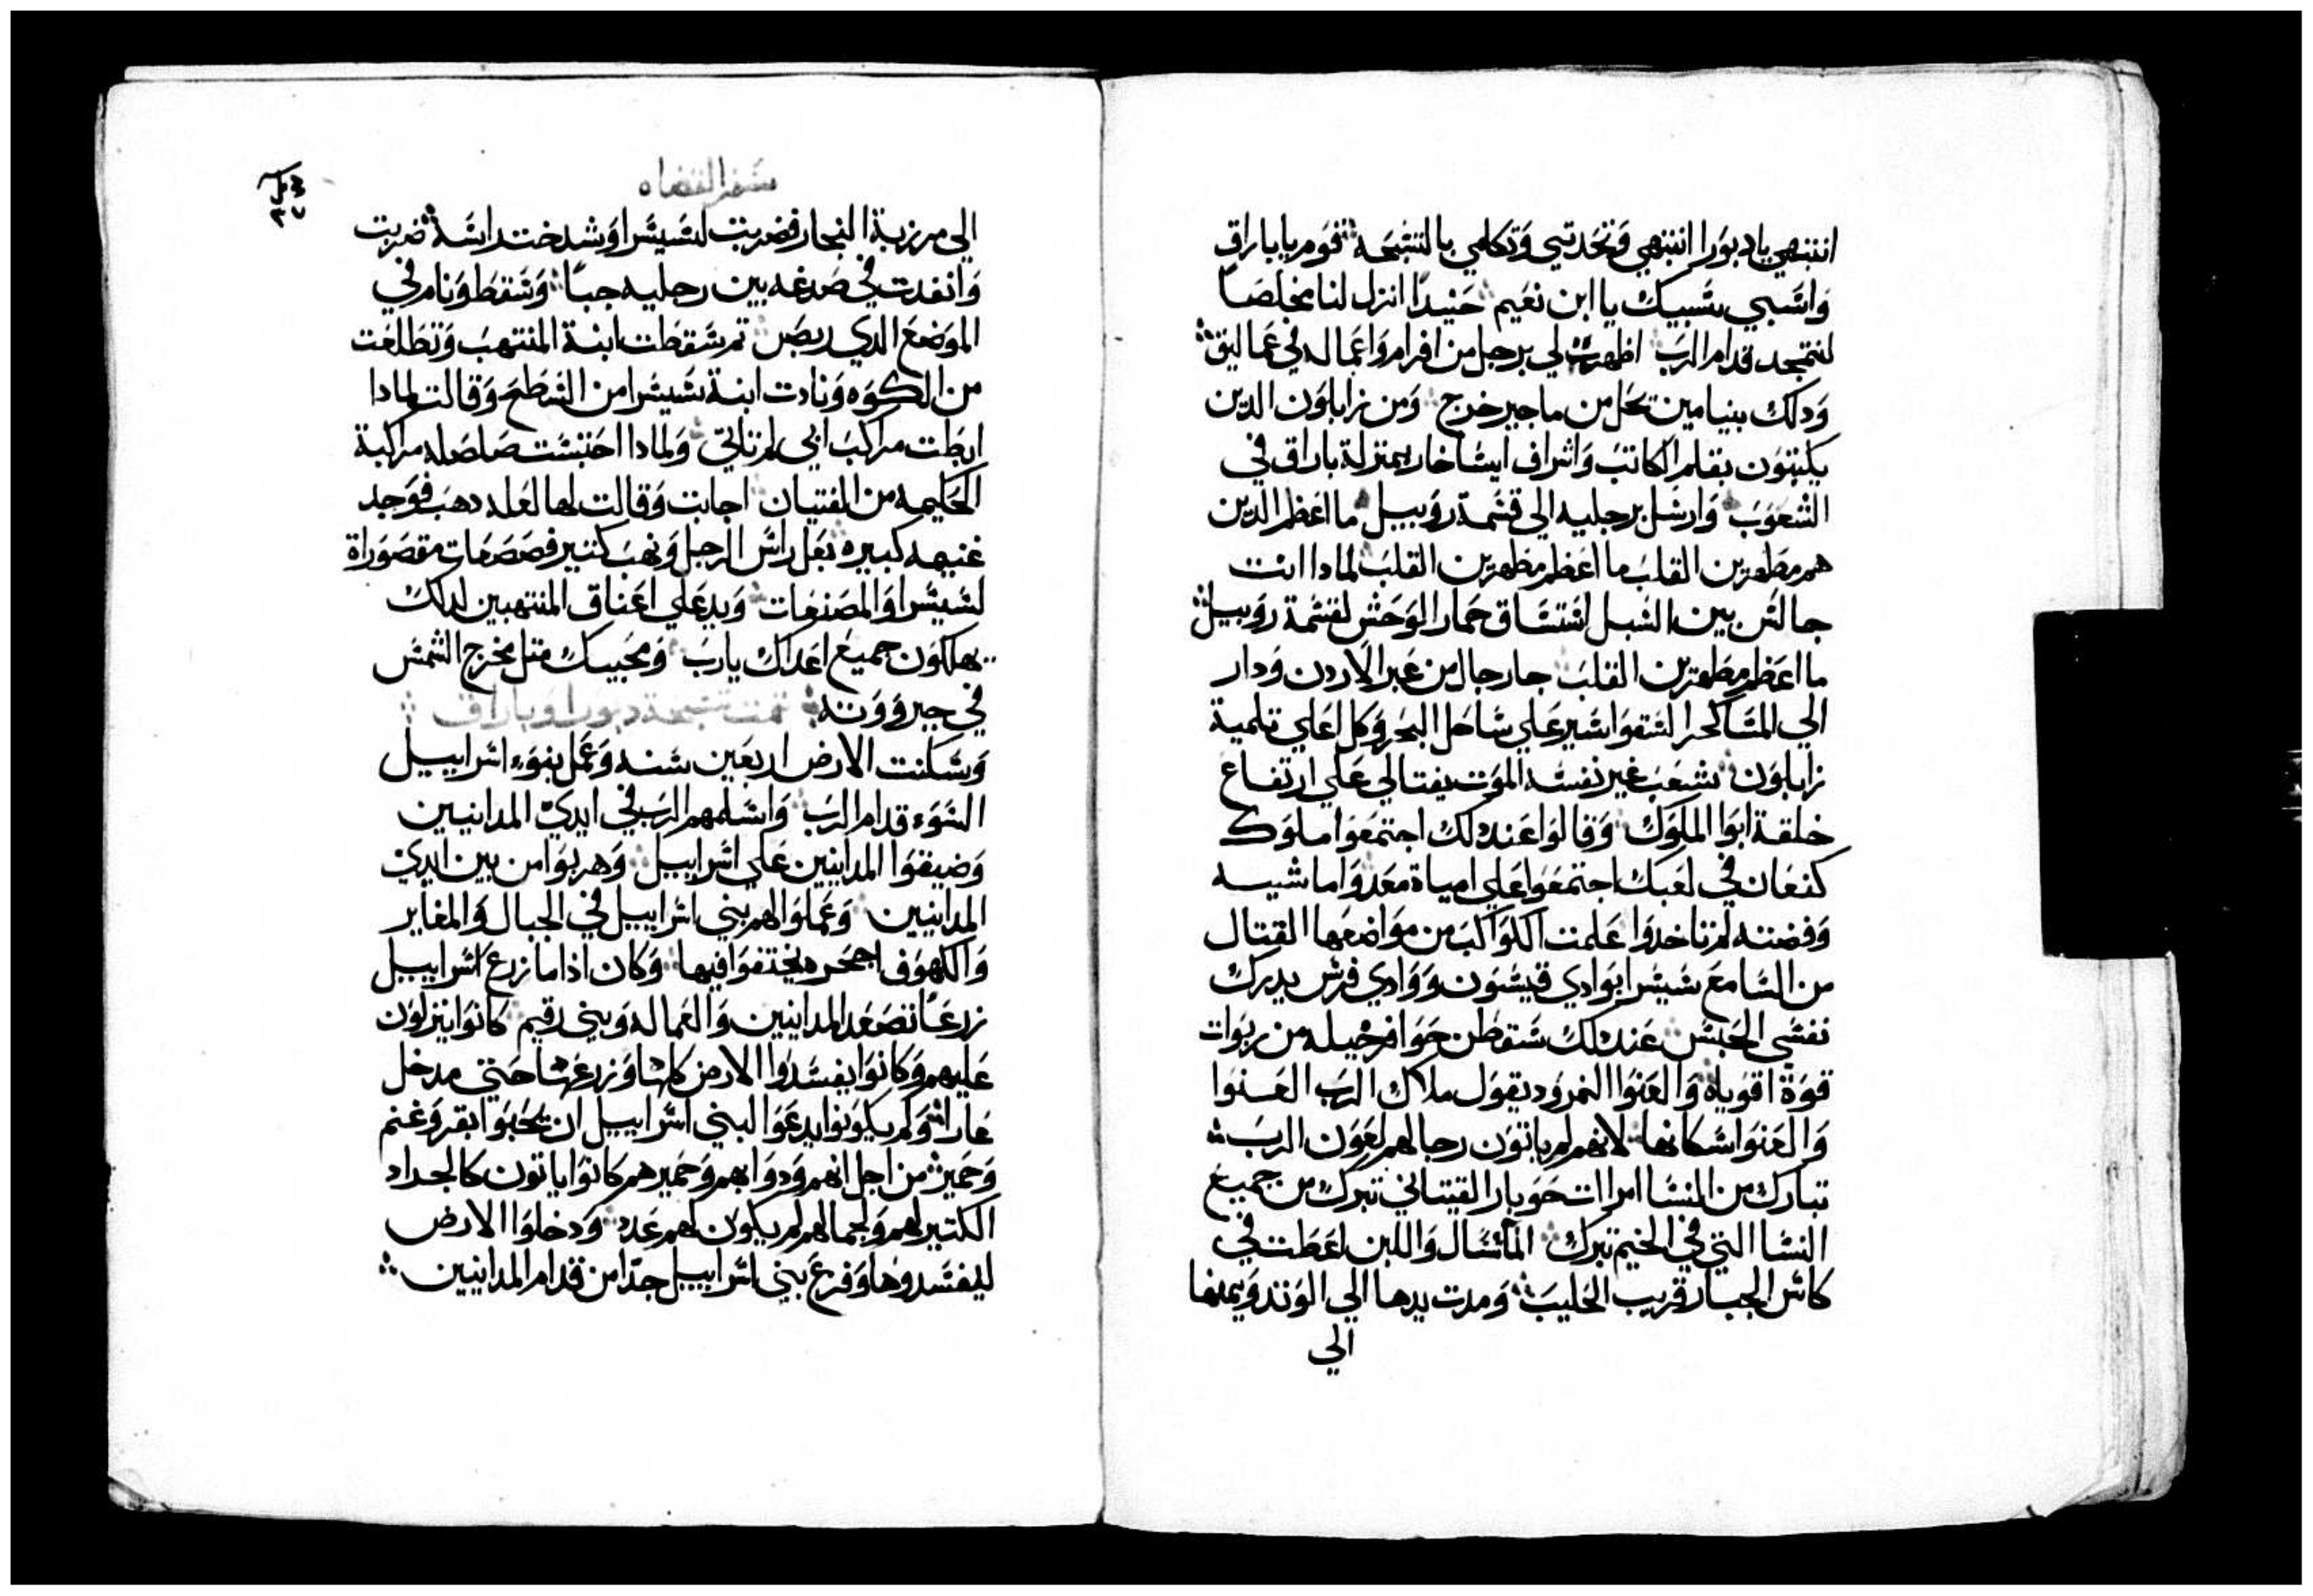 انتبهي يا دبورا انتبهي وتحدتي وتكلمي بالتسبحه قوم يا باراق
واسبي سبيك يا ابن نعيم حنيدا انزل لنا مخلصا
لنتمجد قدام الرب اظهرت لي برجل من افرام واعماله في عماليق
ودلك بنيامين نحل من ماجير خرج ومن زابلون الدين
يكتبون بقلم الكاتب واشراف ايساخار بمنزلة باراق في
الشعوب وارسل برجليه الي قسمة روبيل ما اعظم الدين
هم مطهرين القلب ما اعظم مطهرين القلب لمادا انت
جالس بين السبل استساق حمار الوحش لقسمة روبيل
ما اعظم مطهرين القلب جا رجال من عبر الاردن ودار
الي المساكحرا لسقوا سير علي ساحل البحر وكل اعلي تلمية
زابلون شعب غير نفسه الموت يفتالي علي ارتفاع
خلقة ابوا الملوك وقالوا عند دلك اجتمعوا ملوك
كنعان في لعبك اجتمعوا علي امياة معدوا ماشيسه
وفضته لم تاخدوا علمت الكواكب من مواضعها القتال
من السامع سيسرا بوادي قيسون ووادي فرس يدرك
نفسي الحبش عند دلك سقطن حوافر خيله من ربوات
قوة اقوياه والعنوا النمرود يقول ملاك الرب العنوا
والعنوا سكانها لانهم لم ياتون رجالهم لعون الرب
تبارك من النسا امراات حوبار القيتاني تبرك من جميع
النسا التي في الخيم تبرك المآ سال واللبن اعطت في
كاس الجبار قريب الحليب ومدت يدها الي الوتد ويمنها
الي
سفر القضاه
الي مرزبة النجار فضربت لسيسرا وشدخت راسه ضربت
وانفدت في صدغه بين رجليه جبا وسقط ونام في
الموضع الدي ربض تم سقطت ابنة المنتهب وتطلعت
من الكوه ونادت ابنة سيسرا من السطح وقالت لمادا
ابطت مراكب ابي لم تاتي ولمادا احتبست صلصله مراكبة
الحكيمه من الفتيان اجابت وقالت لها لعله دهب فوجد
غنيمه كبيره بغل راس الرجل ونهب كتير فصصعات مقصوراة
لسيسرا والمصنعات ويد علي اعناق المنتهبين لدلك
يهلكون جميع اعداك يارب ومحبيك متل مخرج الشمس
في جبرووته تمت تسبحة دبورا وباراق
وسكنت الارض اربعين سنه وعمل بنوء اسراييل
السوء قدام الرب واسلمهم الرب في ايدي المدانيين
وضيقوا المدانيين علي اسراييل وهربوا من بين ايدي
المدانيين وعملوا لهم بني اسراييل في الجبال والمغاير
والكهوف اجحره يختفوا فيها وكان اذا ما زرع اسراييل
زرعا تصعد المدانيين والعماله وبني رقيم كانوا ينزلون
عليهم وكانوا يفسدوا الارض كلها وزرعها حتي مدخل
عاراه ولم يكونوا يدعوا لبني اسراييل ان يحبوا بقر وغنم
وحمير من اجل انهم ودوابهم وحميرهم كانوا ياتون كالجداد
الكتير لهم ولجمالهم لم يكون لهم عدد ودخلوا الارض
ليفسدوها وفزع بني اسراييل جدا من قدام المدانيين